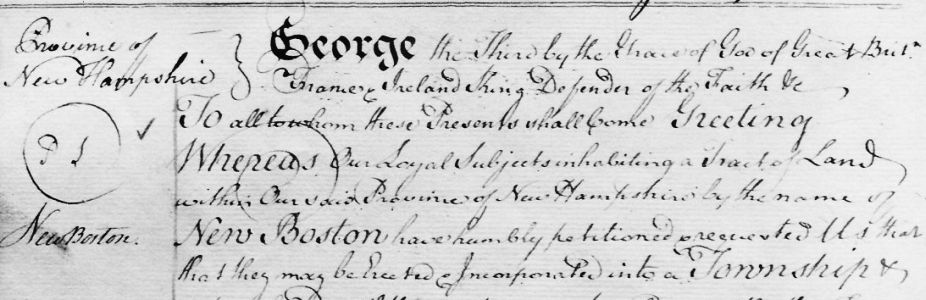 Province of
New Hampshire
P S
New Boston.
George the Third by the Grace of God of Great Britn
France & Ireland King Defender of the Faith &c
To all to whom these Presents shall Come Greeting
Whereas Our Loyal Subjects inhabiting a Tract of Land
within Our said Province of New Hampshire by the name of
New Boston have humbly petitioned & requested Us that
that they may be Erected & Incorporated into a Township &